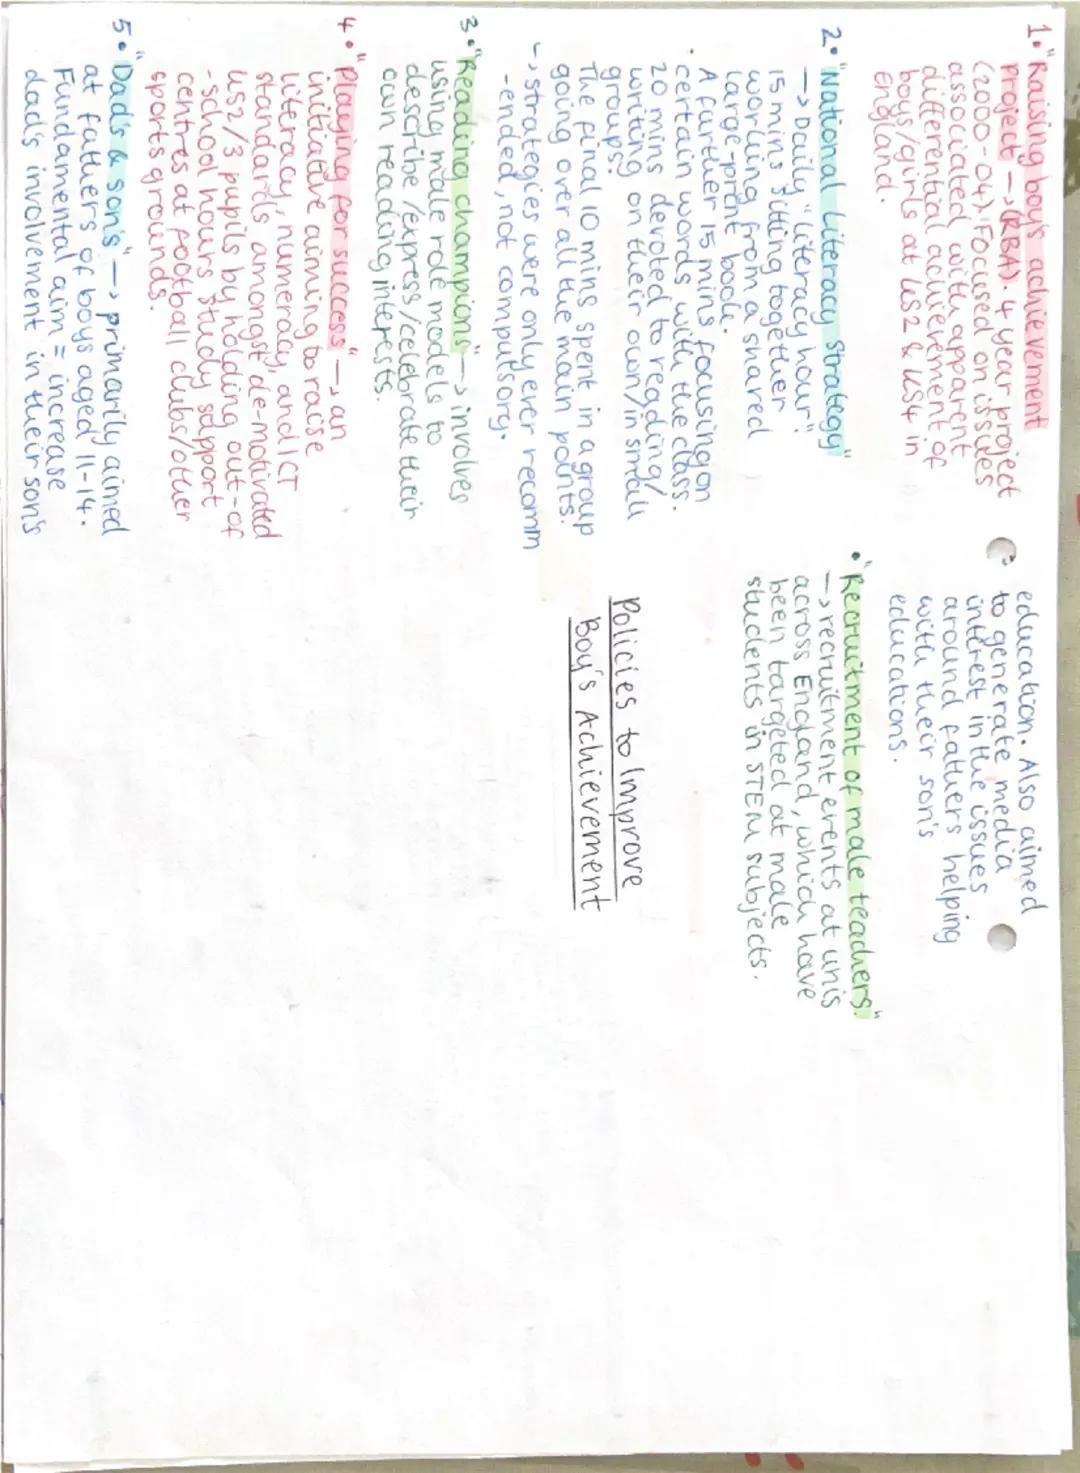 1. "Raising boy's achievement
project → (RBA). 4 year project
(2000-04). Focused on issues
associated with apparent
differential achievement of
boys/girls at KS2 & KS4 in
England.
2. "National Literacy Strategy"
→ Daily "literacy hour":
15 mins sitting together
working from a shared
large-print book.
A further 15 mins focusing on
certain words with the class.
20 mins devoted to reading/
writing on their own/in small
groups.
The final 10 mins spent in a group
going over all the main points.
↳ strategies were only ever recomm
-ended, not compulsory.
3. "Reading champions" → involves
using male role models to
describe/express/celebrate their
own reading interests.
4. "Playing for success" → an
initiative aiming to raise
literacy, numeracy, and ICT
standards amongst de-motivated
KS2/3 pupils by holding out-of
-school hours study support
centres at football clubs/other
sports grounds.
5. "Dad's & son's" → primarily aimed
at fathers of boys aged 11-14.
Fundamental aim = increase
dad's involvement in their son's
education. Also aimed
to generate media
interest in the issues
around fathers helping
with their son's
educations.
• "Recruitment of male teachers."
→ recruitment events at unis
across England, which have
been targeted at male
students in STEM subjects.
Policies to Improve
Boy's Achievement